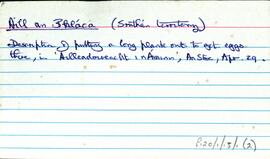 Aill an Phláca (Southern
Description of putting a long plank out to get eggs
there, in 'Ailleadóireacht in Árainn', An Stoc, Apr. 29.
P.20/1/5/1 (2)